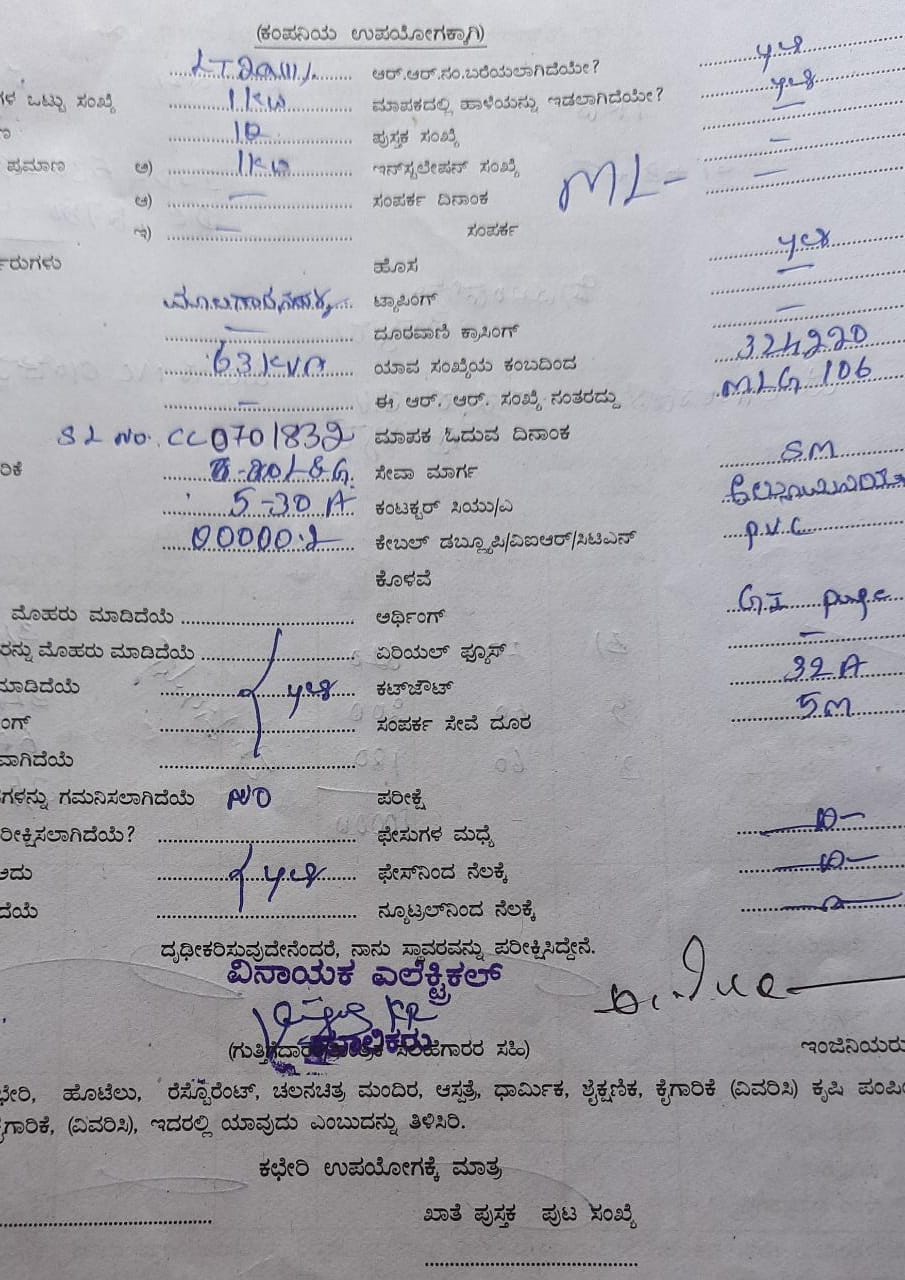 (ಕಂಪನಿಯ ಉಪಯೋಗಕ್ಕಾಗಿ)
ಆರ್.ಆರ್.ನಂ.ಬರೆಯಲಾಗಿದೆಯೇ? yes
ಗಳ ಒಟ್ಟು ಸಂಖ್ಯೆ 1 KW ಮಾಪಕದಲ್ಲಿ ಹಾಳೆಯನ್ನು ಇಡಲಾಗಿದೆಯೇ? yes
ಪುಸ್ತಕ ಸಂಖ್ಯೆ —
ಪ್ರಮಾಣ ಅ) 1 KW ಇನ್‌ಸ್ಟಲೇಷನ್ ಸಂಖ್ಯೆ ML- —
ಆ) — ಸಂಪರ್ಕ ದಿನಾಂಕ —
ಇ) — ಸಂಪರ್ಕ
ಹೊಸ yes
ಟ್ಯಾಪಿಂಗ್ —
— ದೂರವಾಣಿ ಕ್ರಾಸಿಂಗ್ —
63 KVA ಯಾವ ಸಂಖ್ಯೆಯ ಕಂಬದಿಂದ 324220
— ಈ ಆರ್. ಆರ್. ಸಂಖ್ಯೆ ನಂತರದ್ದು MLG 106
SL NO. CC0701832 ಮಾಪಕ ಓದುವ ದಿನಾಂಕ
ರಿಕೆ L&G. ಸೇವಾ ಮಾರ್ಗ SM
5-30 A ಕಂಟಕ್ಟರ್ ಸಿಯು/ಎ
00000.2 ಕೇಬಲ್ ಡಬ್ಲ್ಯೂಪಿ/ವಿಐಆರ್/ಸಿಟಿಎಸ್ P.V.C
ಕೊಳವೆ
ಮೊಹರು ಮಾಡಿದೆಯೆ ಅರ್ಥಿಂಗ್ G.I pipe
ರನ್ನು ಮೊಹರು ಮಾಡಿದೆಯೆ ಏರಿಯಲ್ ಫ್ಯೂಸ್ —
ಮಾಡಿದೆಯೆ yes ಕಟ್‌ಔಟ್ 32 A
ಂಗ್ ಸಂಪರ್ಕ ಸೇವೆ ದೂರ 5m
ವಾಗಿದೆಯೆ
ಗಳನ್ನು ಗಮನಿಸಲಾಗಿದೆಯೆ NO ಪರೀಕ್ಷೆ
ರೀಕ್ಷಿಸಲಾಗಿದೆಯೆ? ಫೇಸುಗಳ ಮಧ್ಯೆ
ಅದು yes ಫೇಸ್‌ನಿಂದ ನೆಲಕ್ಕೆ
ದೆಯೆ ನ್ಯೂಟ್ರಲ್‌ನಿಂದ ನೆಲಕ್ಕೆ
ದೃಢೀಕರಿಸುವುದೇನೆಂದರೆ, ನಾನು ಸ್ಥಾವರವನ್ನು ಪರೀಕ್ಷಿಸಿದ್ದೇನೆ.
ವಿನಾಯಕ ಎಲೆಕ್ಟ್ರಿಕಲ್
ಮಾಲಿಕರು
ಇಂಜಿನಿಯರು
ಹೊಟೆಲು, ರೆಸ್ಟೊರೆಂಟ್, ಚಲನಚಿತ್ರ ಮಂದಿರ, ಆಸ್ಪತ್ರೆ, ಧಾರ್ಮಿಕ, ಶೈಕ್ಷಣಿಕ, ಕೈಗಾರಿಕೆ (ವಿವರಿಸಿ) ಕೃಷಿ ಪಂಪಿ
ಗಾರಿಕೆ, (ವಿವರಿಸಿ), ಇದರಲ್ಲಿ ಯಾವುದು ಎಂಬುದನ್ನು ತಿಳಿಸಿರಿ.
ಕಛೇರಿ ಉಪಯೋಗಕ್ಕೆ ಮಾತ್ರ
ಖಾತೆ ಪುಸ್ತಕ ಪುಟ ಸಂಖ್ಯೆ